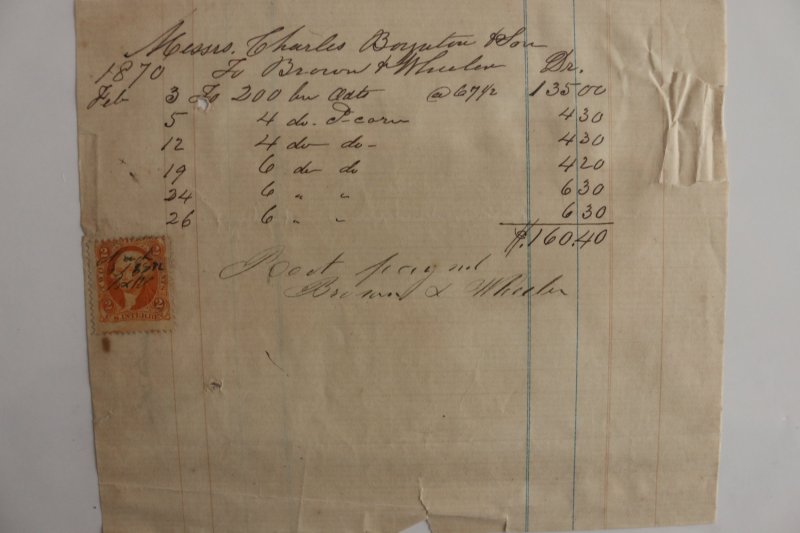 Messrs. Charles Boynton & Son
1870 To Brown & Wheeler Dr.
Feb 3 To 200 bu Oats @ 67 1/2 135 00
5 4 do. corn 4 30
12 4 do do - 4 30
19 6 do do 4 20
24 6 " " 6 30
26 6 " " 6 30
$.160.40
Recd payment
Brown & Wheeler
2 2